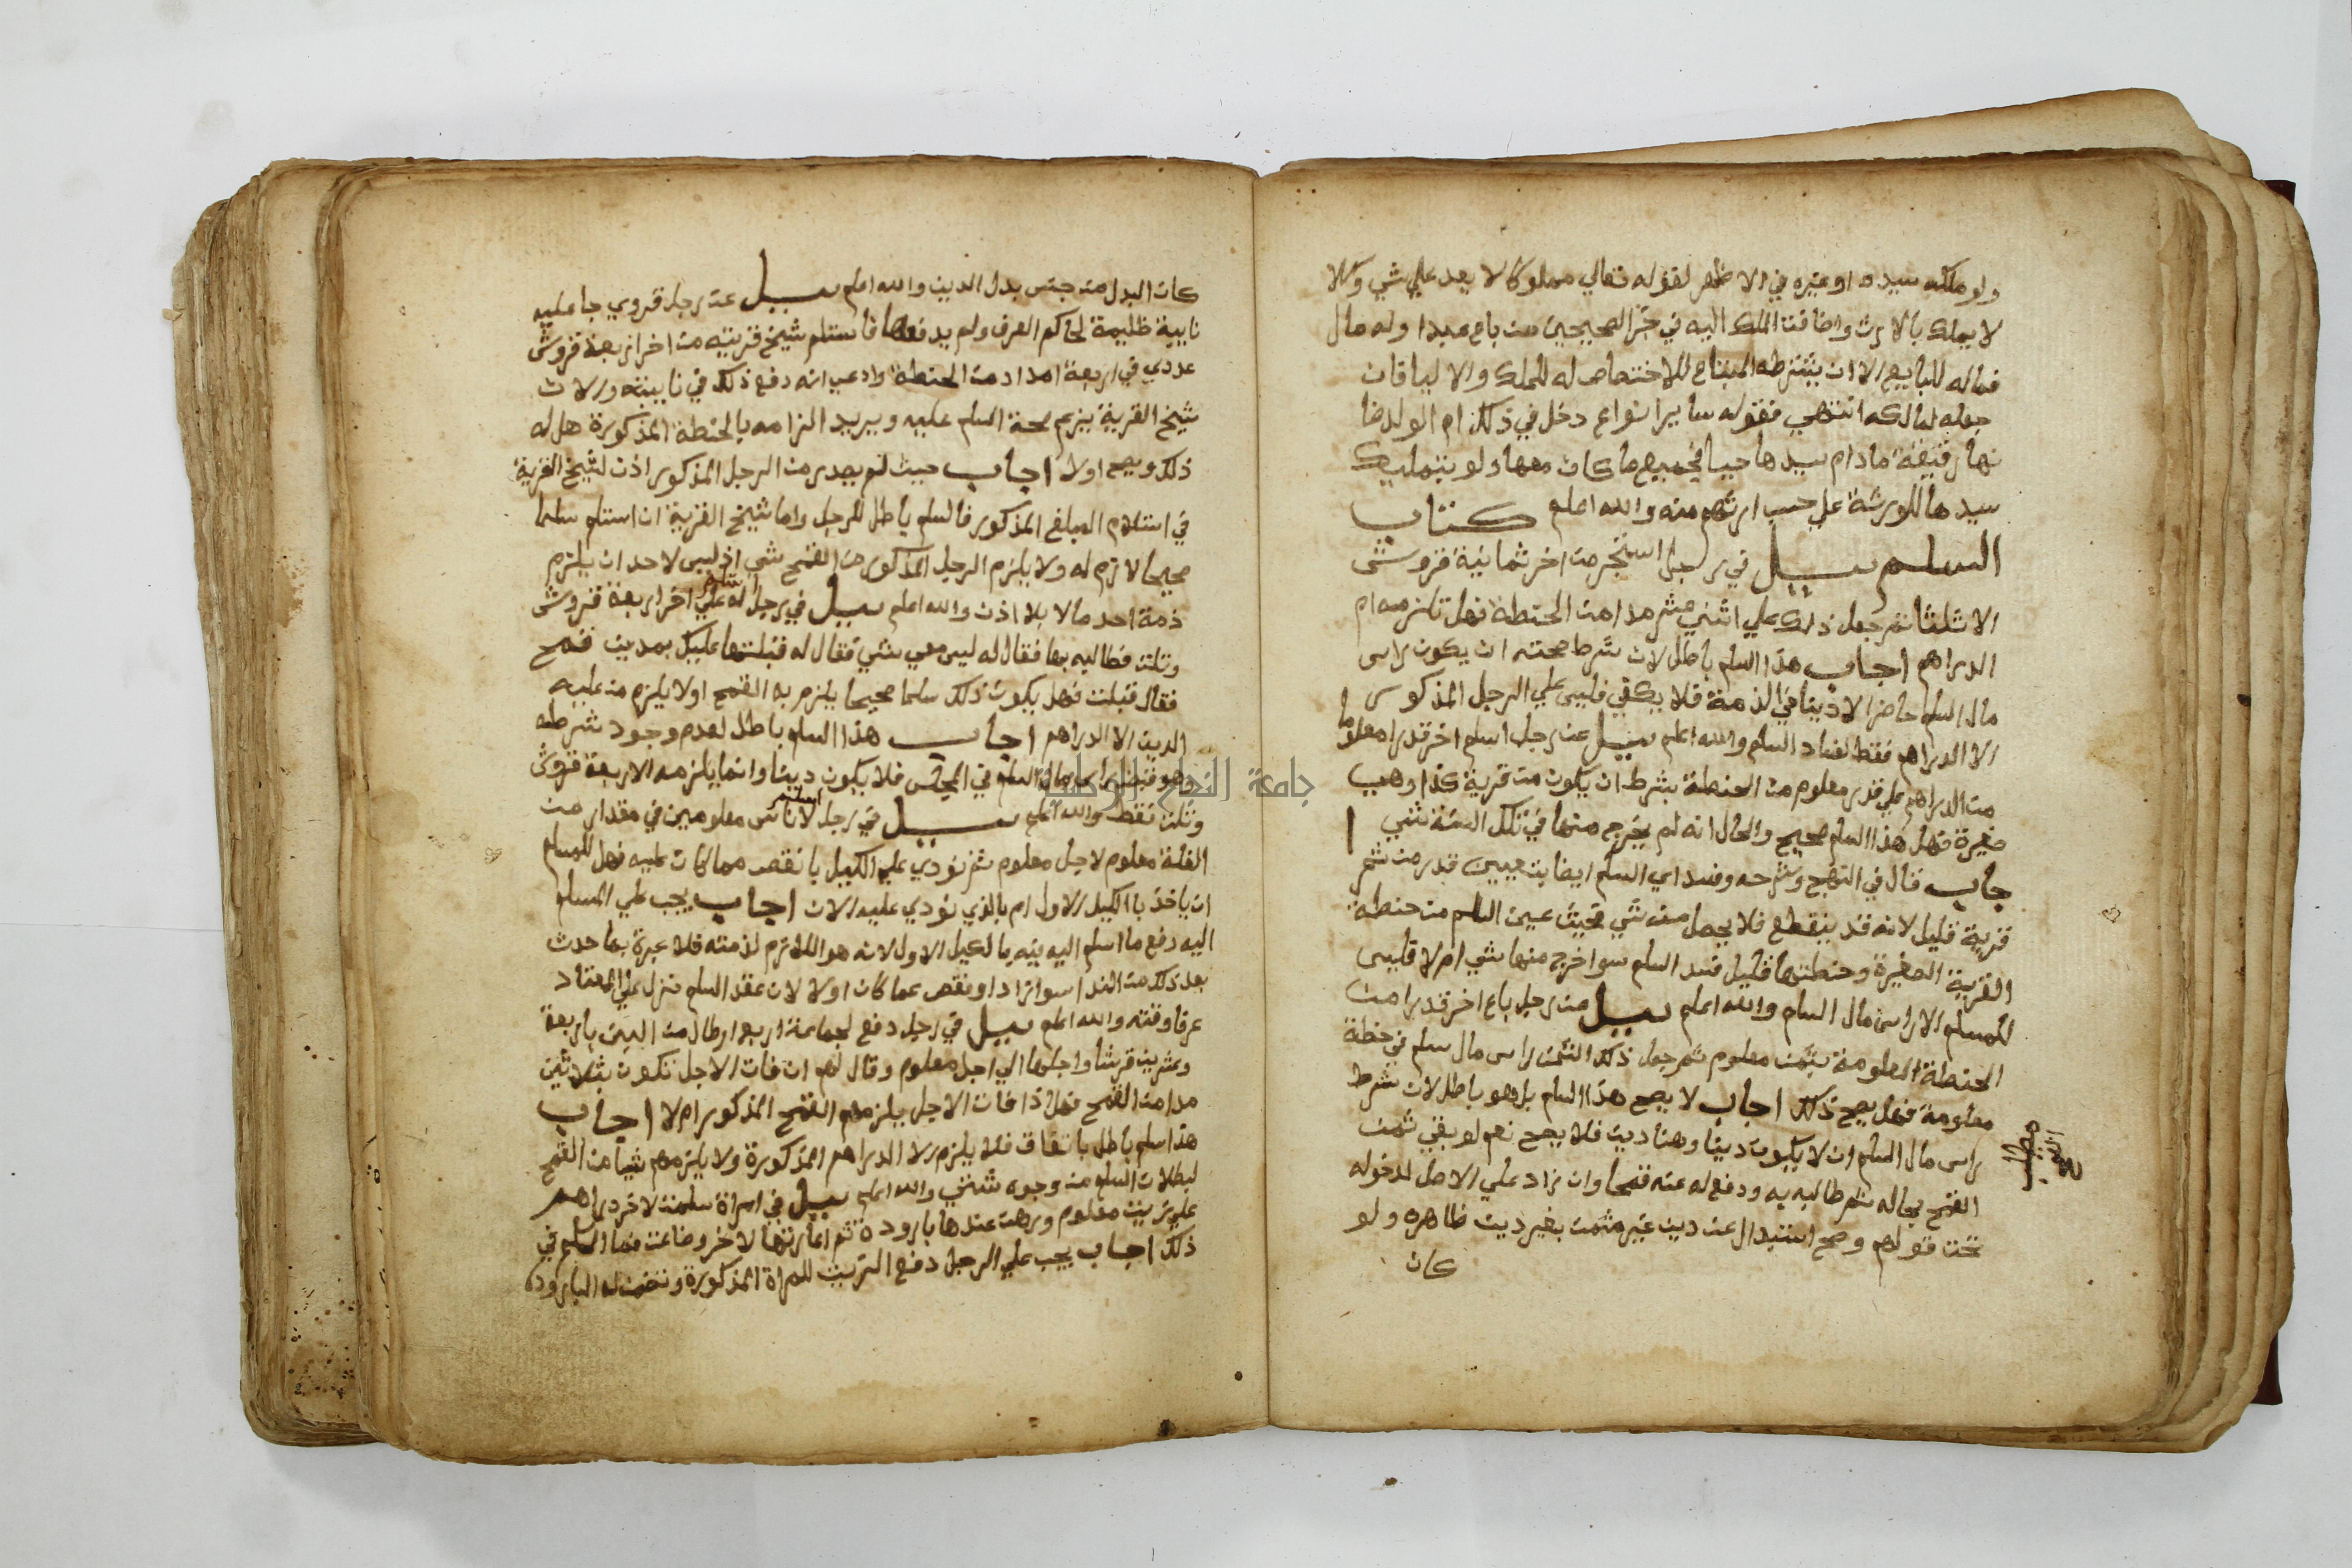 ولو ملكه سيده او غيره في الاظهر لقوله تعالي مملوكا لا يقدر علي شي وكلا
لا يملك بالارث واضافت الملك اليه في خبر الصحيحين من باع عبدا وله مال
فماله للبايع الا ان يشترطه المبتاع للاختصاص له للملك والا
جعله لمالكه انتهي فقوله ساير انواع دخل في ذلك ام الولد
رقيقة مادام سيدها حيا فجميع ما كان معها ولو بتمليك
سيدها للورثة علي حسب ارثهم منه والله اعلم كتاب
السلم سيل في رجل من اخر ثمانية قروش
الا ثلثا ثم جعل ذلك علي اثني عشر مدا من الحنطة فهل تلزمه ام
الدراهم اجاب هذا السلم باطل لان شرط صحته ان يكون راس
مال السلم حاضرا لا دينا في الذمة فلا يكفي فليس علي الرجل المذكور
الا الدراهم فقط لفساد السلم والله اعلم سيل عن رجل اسلم اخر قدرا معلوما
من الدراهم علي قدر معلوم من الحنطة بشرط ان يكون من قرية كذا وهي
صغيرة فهل هذا السلم صحيح والحال انه لم يخرج منها في تلك السنة شي ا
جاب قال في المنهج وشرحه وفسد اي السلم ايضا بتعيين قدر من ثمر
قرية قليل لانه قد ينقطع فلا يحصل منه شي فحيث عين السلم من حنطة
القرية الصغيرة وحنطتها قليل فسد السلم سوا خرج منها شي ام لا فليس
للمسلم الا راس مال السلم والله اعلم سيل عن رجل باع اخر قدرا من
الحنطة المعلومة بثمن معلوم ثم جعل ذلك الثمن راس مال سلم في حنطة
معلومة فهل يصح ذلك اجاب لا يصح هذا السلم بل هو باطل لان شرط
راس مال السلم ان لا يكون دينا وهنا دين فلا يصح نعم لو بقي ثمن
القمح بحاله ثم طالبه به ودفع له عنه قمحا وان زاد علي الاصل لدخوله
تحت قولهم وصح استبدال عن دين غير مثمن بغير دين ظاهره ولو
كان
مطلب
كان البدل من جنس بدل الدين والله اعلم سيل عن رجل قروي جا عليه
نايبة ظليمة لحاكم العرف ولم يدفعها فاستلم شيخ قريته من اخر اربعة قروش
عددي في اربعة امداد من الحنطة وادعي انه دفع ذلك في نايبته والان
شيخ القرية يزعم صحة السلم عليه ويريد الزامه بالحنطة المذكورة هل له
ذلك ويصح اولا اجاب حيث لم يصدر من الرجل المذكور اذن لشيخ القرية
في استلام المبلغ المذكور فالسلم باطل للرجل واما شيخ القرية ان استلم سلما
صحيحا لازم له ولا يلزم الرجل المذكور من القمح شي اذ ليس لاحد ان يلزم
ذمة احد مالا بلا اذن والله اعلم سيل في رجل له علي اخر اربعة قروش
وثلث فطالبه بها فقال له ليس معي شي فقال له قبلتها عليك بمدين قمح
فقال قبلت فهل يكون ذلك سلما صحيحا يلزم به القمح او لا يلزم من عليه
الدين الا الدراهم اجاب هذا السلم باطل لعدم وجود شرطه
وهو قبض راس مال السلم في المجلس فلا يكون دينا وانما يلزمه الاربعة قروش
وثلث فقط والله اعلم سيل في رجل اسلم لاناس معلومين في مقدار من
الغلة معلوم لاجل معلوم ثم نودي علي الكيل بانقص مما كان عليه فهل للمسلم
ان ياخذ بالكيل الاول ام بالذي نودي عليه الان اجاب يجب علي المسلم
اليه دفع ما اسلم اليه فيه بالكيل الاول لانه هو اللازم لذمته فلا عبرة بما حدث
بعد ذلك من الندا سوا زاد او نقص عما كان اولا لان عقد السلم نزل علي المعتاد
عرفا وقته والله اعلم سيل في رجل دفع لجماعة اربع ارطال من البن باربعة
وعشرين قرشا واجلها الي اجل معلوم وقال لهم ان فات الاجل تكون بثلاثين
مدا من القمح فهل اذا فات الاجل يلزمهم القمح المذكور ام لا اجاب
هذا سلم باطل باتفاق فلا يلزم الا الدراهم المذكورة ولا يلزمهم شيا من القمح
لبطلان السلم من وجوه شتي والله اعلم سيل في امراة سلمت لاخر دراهم
علي زيت معلوم ورهن عندها بارودة ثم اعارتها لاخر وضاعت فما الحكم في
ذلك اجاب يجب علي الرجل دفع الزيت للمراة المذكورة وتضمن له البارودة
جامعة النجاح الوطنية